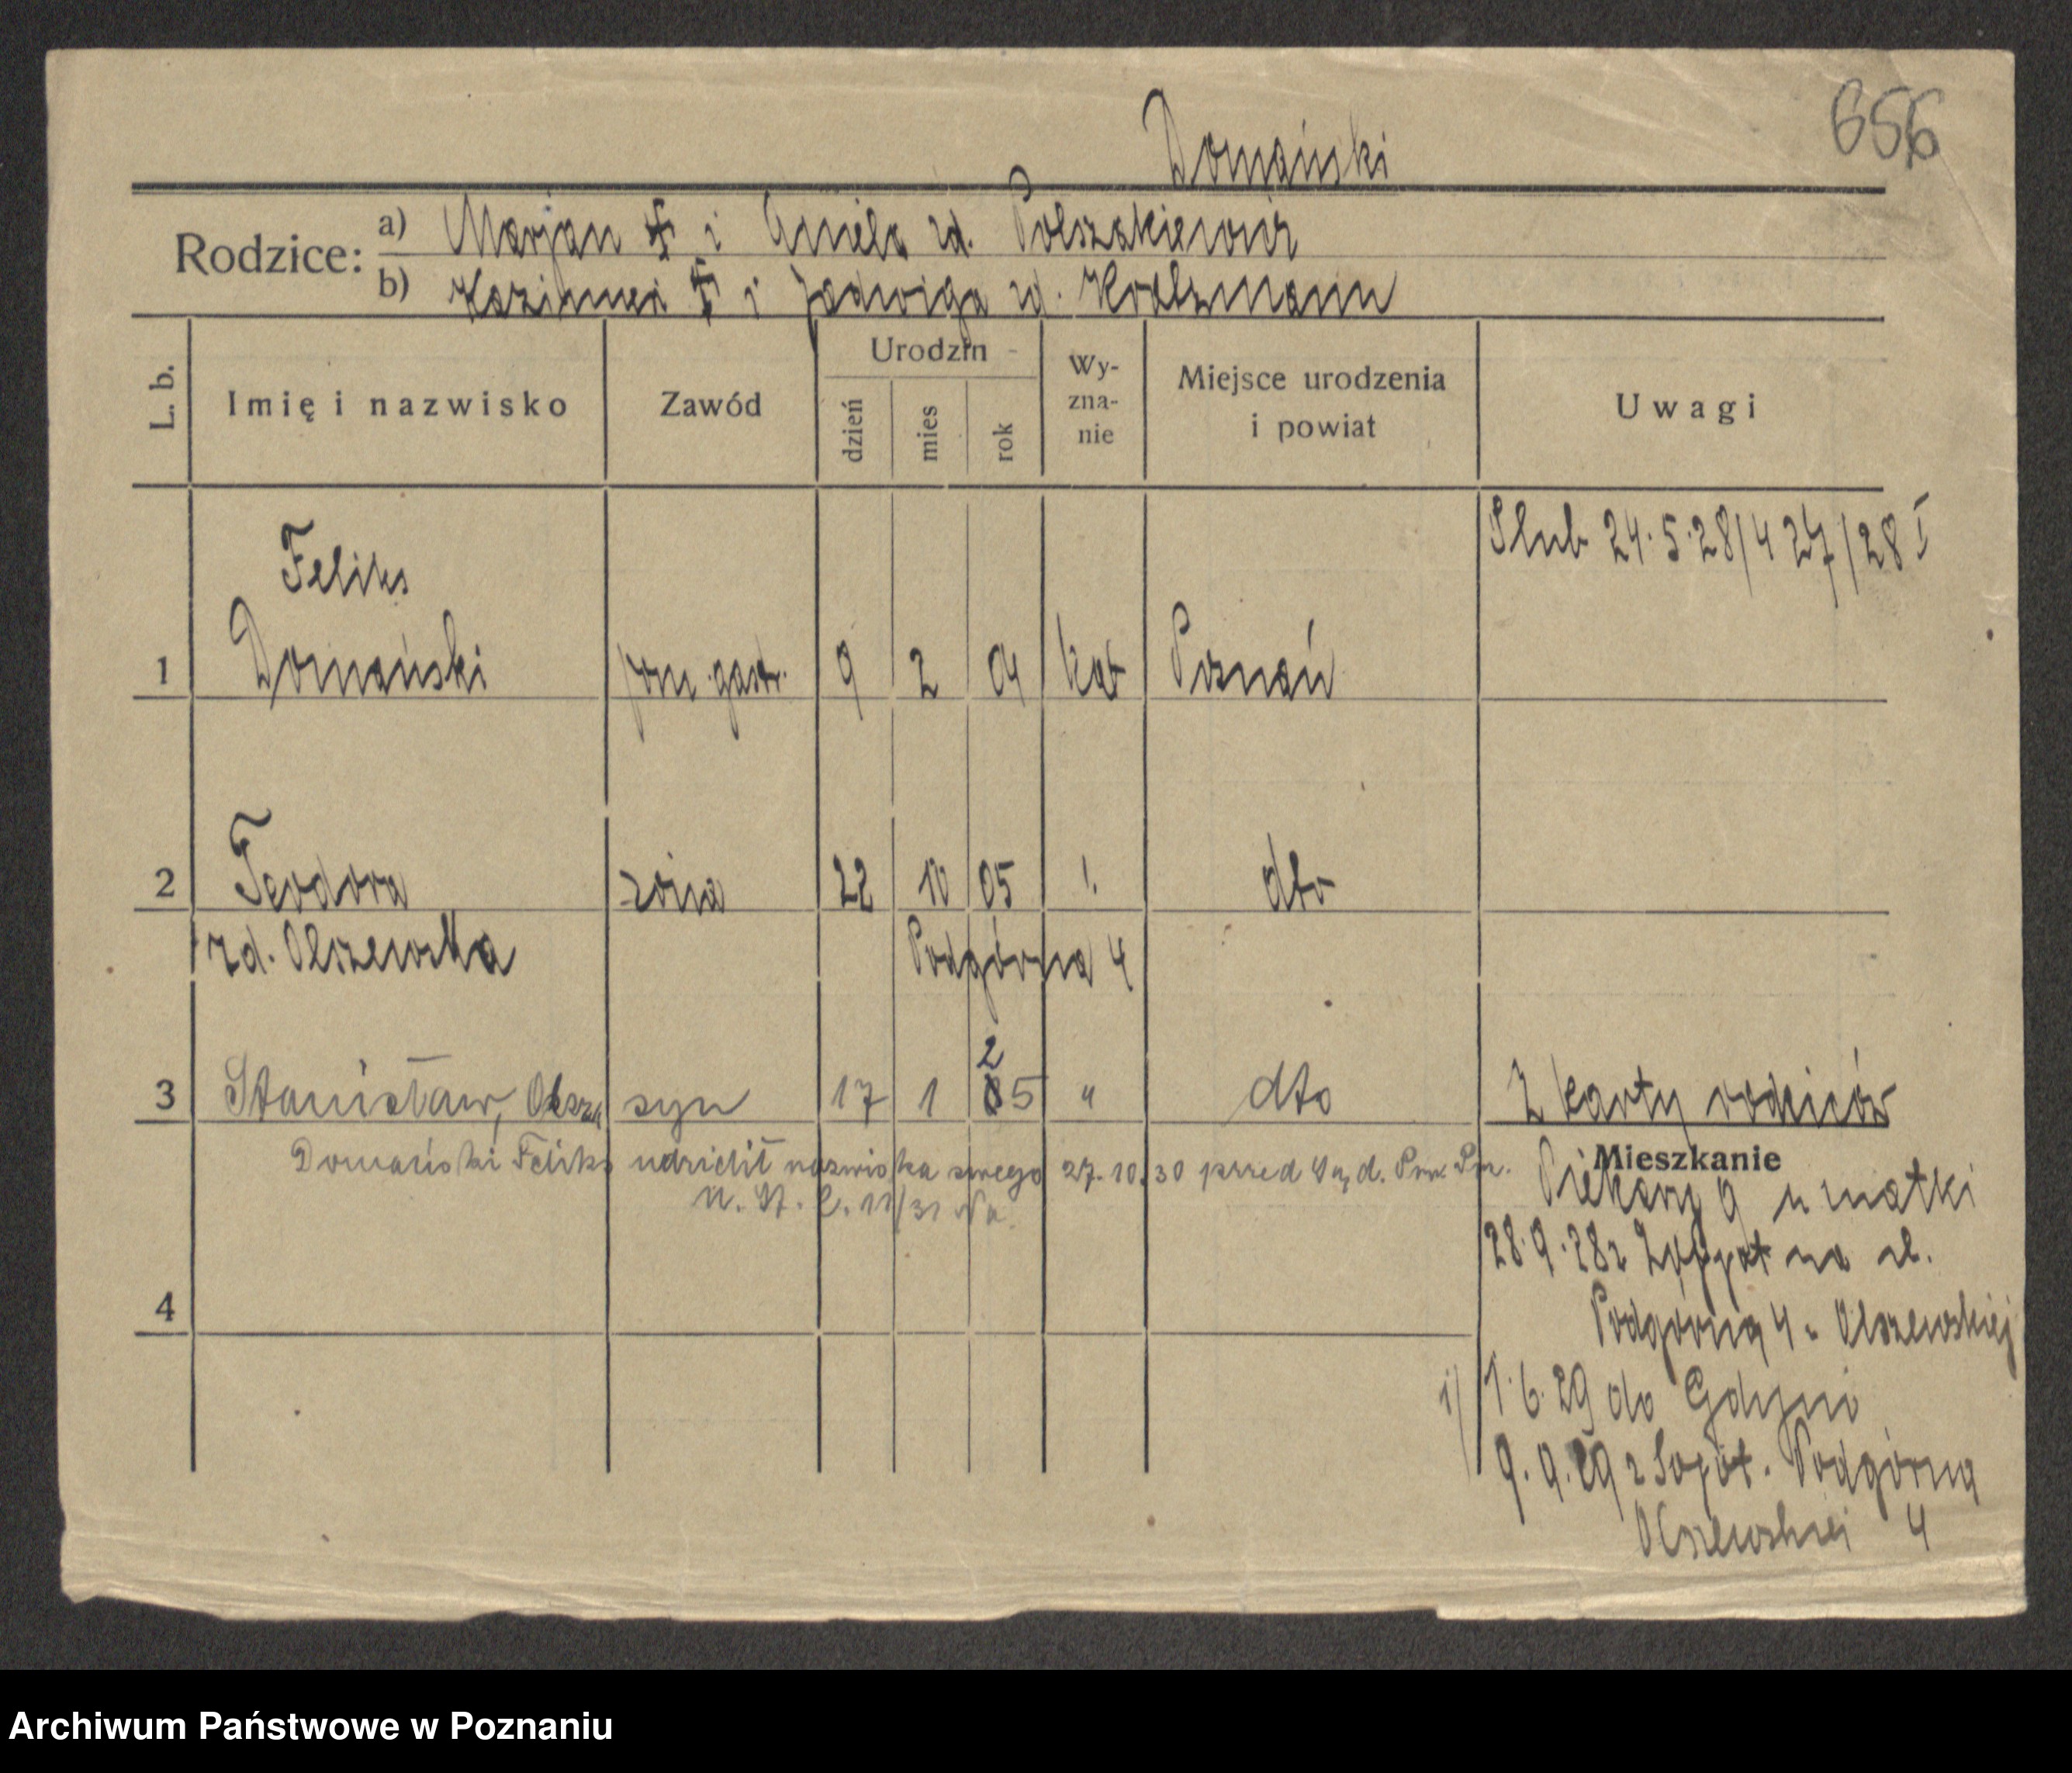 Domański
656
Rodzice:
a) Marjan i Aniela zd.
b) Kazimier i Jadwiga zd.
L. b.
Imię i nazwisko
Zawód
Urodzin
dzień
mies
rok
Wy-
zna-
nie
Miejsce urodzenia
i powiat
Uwagi
Ślub 24.5.28/427/28 I
Feliks
1 Domański pom. gastr. 9 2 04 kat Poznań
2 Teodora żona 22 10 05 dto
zd. Olszewska Podgórna 4
2
3 Stanisław, syn 17 1 5 " dto Z karty rodziców
Domański Feliks udzielił nazwiska swego 27.10.30 przed
Mieszkanie
Piekary 9 u matki
28.9.28 na ul.
Podgórną 4 Olszewskiej
4
1.6.29 do Gdyni
9.9.29 z Sopot. Podgórna
Olszewskiej 4
Archiwum Państwowe w Poznaniu